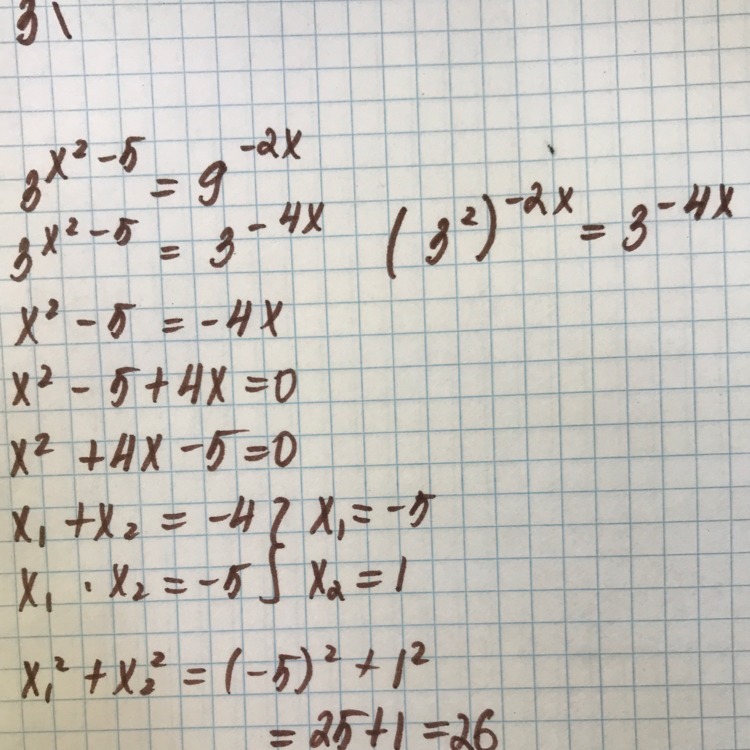 3\
3^{x²-5} = 9^{-2x}
3^{x²-5} = 3^{-4x} (3²)^{-2x} = 3^{-4x}
x² - 5 = -4x
x² - 5 + 4x = 0
x² + 4x - 5 = 0
x₁ + x₂ = -4 } x₁ = -5
x₁ · x₂ = -5 } x₂ = 1
x₁² + x₂² = (-5)² + 1²
= 25 + 1 = 26